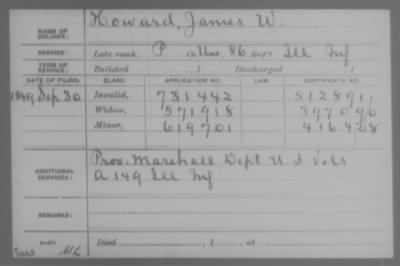 NAME OF SOLDIER: Howard, James W.
SERVICE: Late rank, P Co. Uns, 86 Reg't Ill Inf
TERM OF SERVICE: Enlisted , 1 Discharged , 1
DATE OF FILING. CLASS. APPLICATION NO. LAW. CERTIFICATE NO.
1889 Sep 30 Invalid, 731442 512891
Widow, 571918 397090
Minor, 619701 416428
ADDITIONAL SERVICES: Prov. Marshall Dept U. S Vols
A 149 Ill Inf
REMARKS:
Died , 1 , at